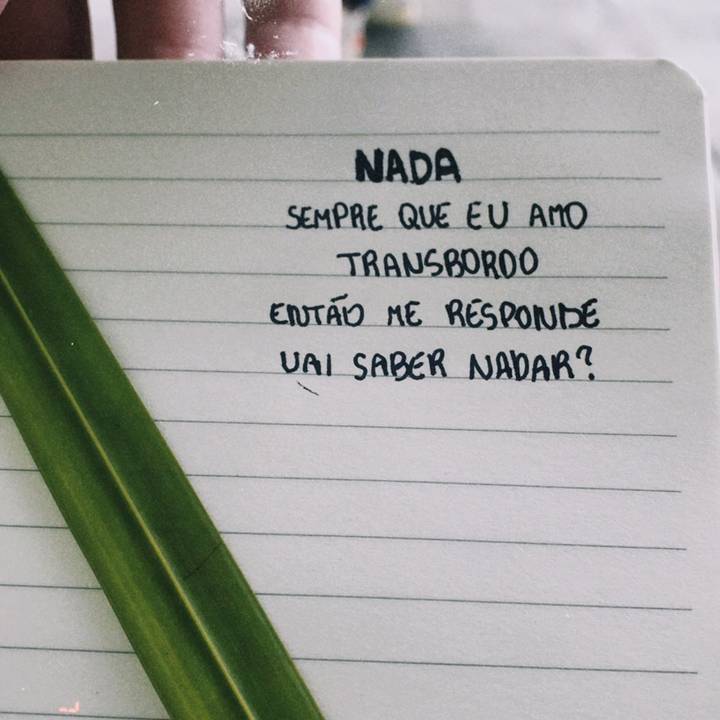 NADA
SEMPRE QUE EU AMO
TRANSBORDO
ENTÃO ME RESPONDE
VAI SABER NADAR?